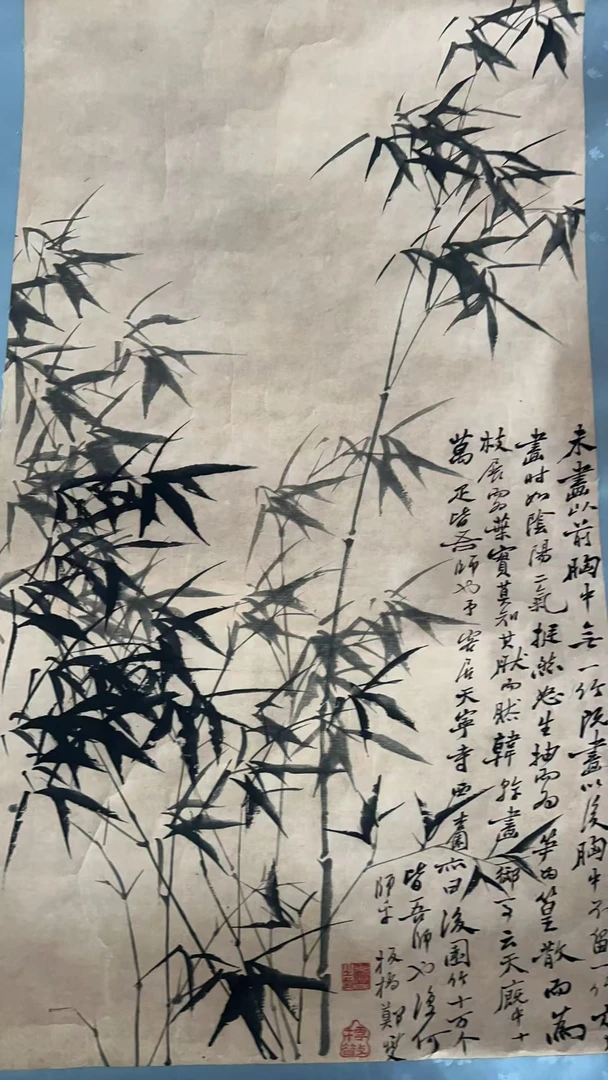 未畫以前胸中無一竹既畫以後胸中不留一竹方其
畫時如陰陽二氣挺然怒生抽而為筍為篁散而為
枝展而為葉實莫知其然而然韓幹畫御馬云天廄中十
萬疋皆吾師也予客居天寧寺西杏園亦曰後園竹十万个
皆吾師也復何
師乎 板橋鄭燮